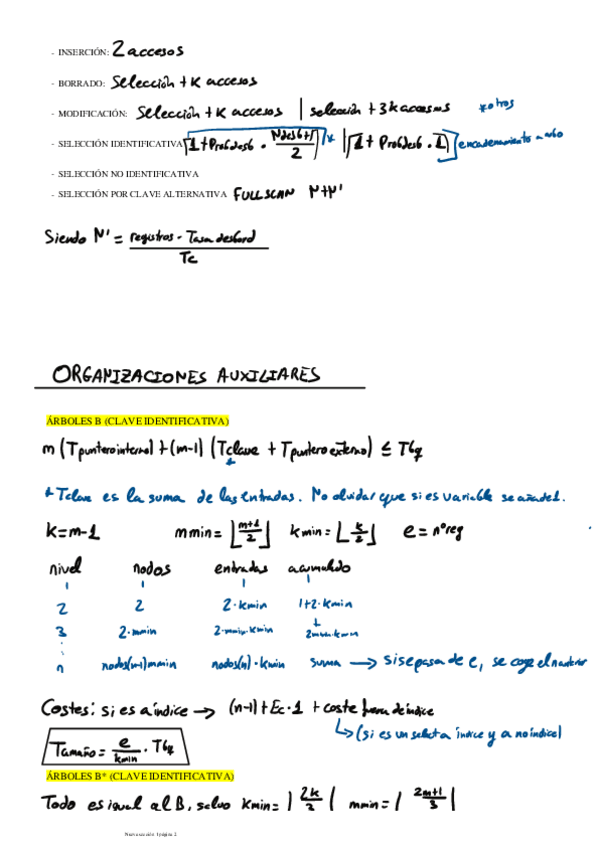 - INSERCIÓN: 2 accesos
- BORRADO: Selección + K accesos
- MODIFICACIÓN: Selección + K accesos | selección + 3K accesos *otros
- SELECCIÓN IDENTIFICATIVA 1 + Probdesb · Ndesb+1 / 2 * | 1 + Probdesb · 1 encadenamiento a nodo
- SELECCIÓN NO IDENTIFICATIVA
- SELECCIÓN POR CLAVE ALTERNATIVA FULLSCAN N+N'
Siendo N' = registros · Tasa desbord / Tc
ORGANIZACIONES AUXILIARES
ÁRBOLES B (CLAVE IDENTIFICATIVA)
m (Tpuntero interno) + (m-1) (Tclave + Tpuntero externo) ≤ Tbq
* Tclave es la suma de las entradas. No olvidar que si es variable se añade 1.
K=m-1 mmin = ⌊m+1 / 2⌋ kmin = ⌊k / 2⌋ e = nºreg
nivel nodos entradas acumulado
1 1 1 1
2 2 2·kmin 1+2·kmin
3 2·mmin 2·mmin·kmin + 2mmin·kmin
n nodos(n-1)mmin nodos(n)·kmin suma → si se pasa de e, se coge el anterior
Costes: si es a índice → (n-1)+Ec·1 + coste fuera de índice
↳ (si es un select a índice y a no índice)
Tamaño = e / kmin · Tbq
ÁRBOLES B* (CLAVE IDENTIFICATIVA)
Todo es igual al B, salvo kmin = | 2k / 3 | mmin = | 2m+1 / 3 |
Nueva sección 1 página 2